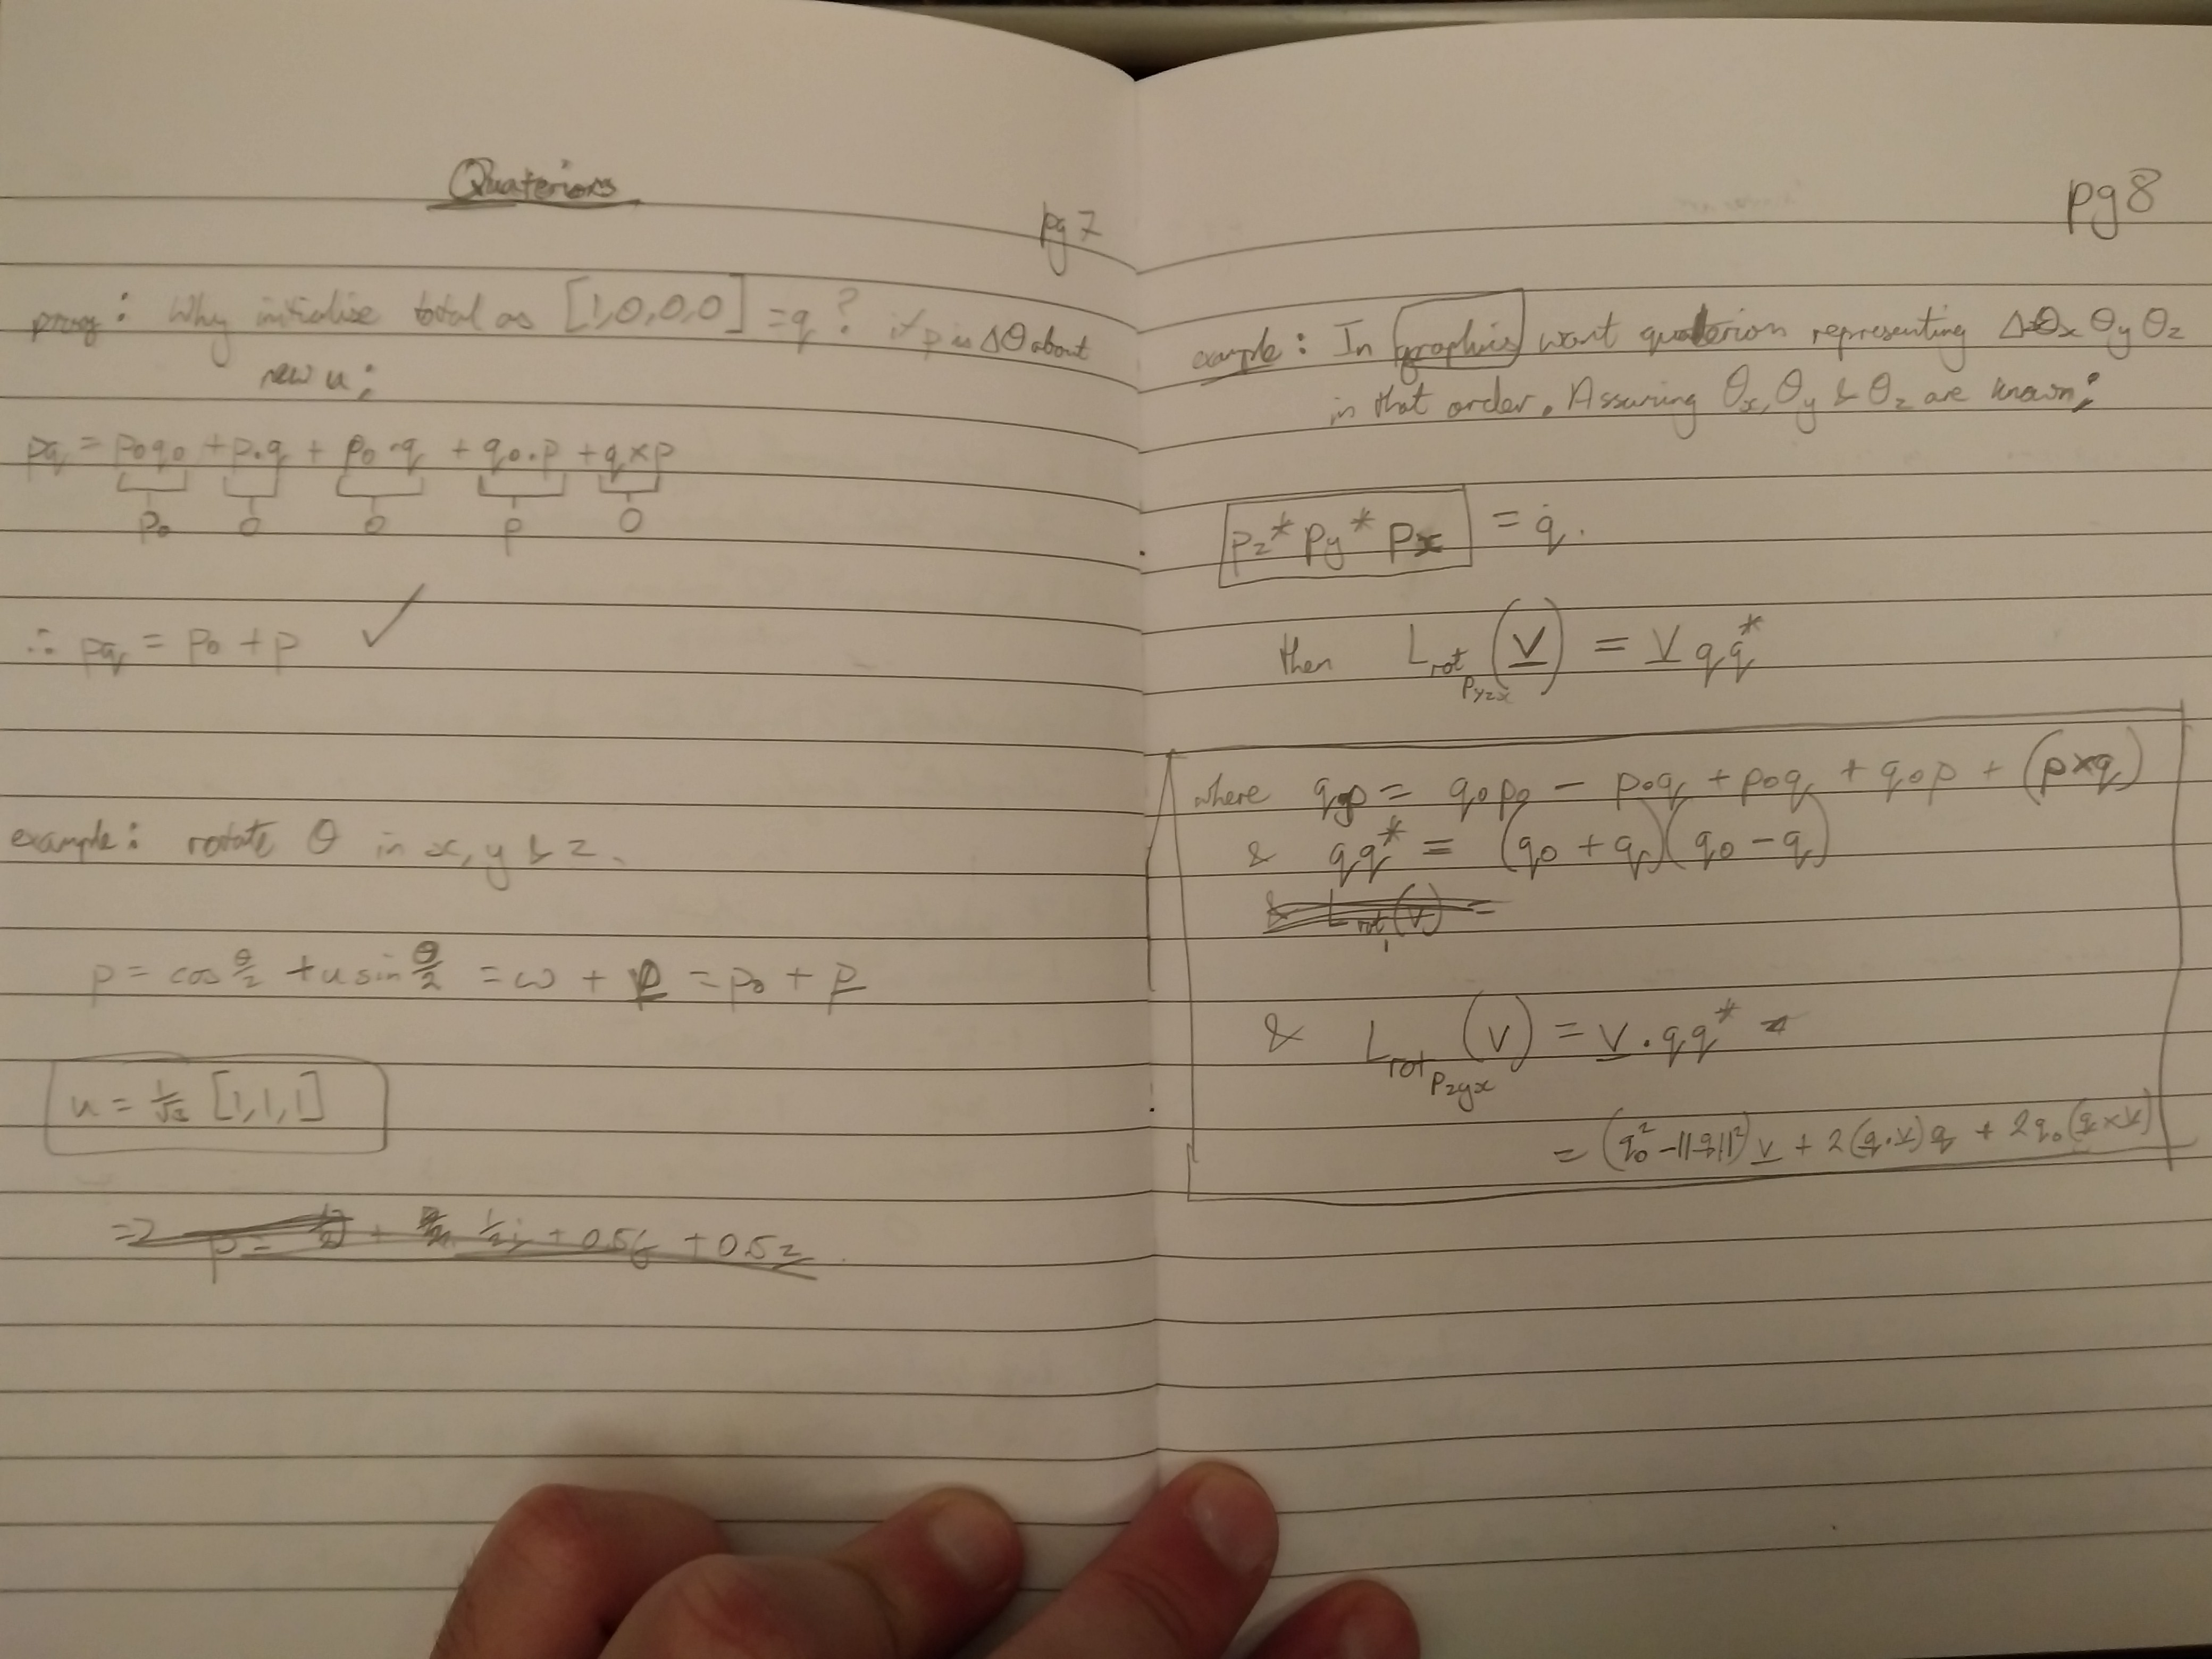 Quaterions
pg 7
proof: Why initialise total as [1,0,0,0] = q? if p is Δθ about
new u:
pq = p₀q₀ + p.q + p₀.q + q₀.p + q×p
p₀ 0 0 p 0
∴ pq = p₀ + p ✓
example: rotate θ in x, y & z.
p = cos θ/2 + u sin θ/2 = ω + p = p₀ + p
u = 1/√2 [1,1,1]
pg 8
example: In graphics want quaterion representing Δθx θy θz
in that order. Assuming θx, θy & θz are known:
pz * py * px = q.
then L rot pyzx (v) = v q q*
where qp = q₀p₀ - p₀q + p₀q + q₀p + (p×q)
& qq* = (q₀ + q)(q₀ - q)
& L rot (v) =
& L rot pzyx (v) = v . q q*
= (q₀² - ||q||²) v + 2(q.v)q + 2q₀(q×v)